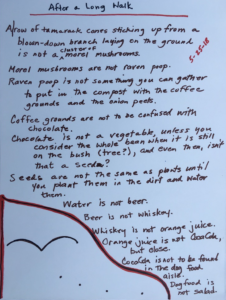 After a Long Walk
A row of tamarack cones sticking up from a
blown-down branch laying on the ground
is not a cluster of morel mushrooms.
5-25-18
Morel mushrooms are not raven poop.
Raven poop is not something you can gather
to put in the compost with the coffee
grounds and the onion peels.
Coffee grounds are not to be confused with
chocolate.
Chocolate is not a vegetable, unless you
consider the whole bean when it is still
on the bush (tree?), and even then, isn't
that a seed?
Seeds are not the same as plants until
you plant them in the dirt and water
them.
Water is not beer.
Beer is not whiskey.
Whiskey is not orange juice.
Orange juice is not CocaCola,
but close.
CocaCola is not to be found
in the dog food
aisle.
Dog food is
not salad.